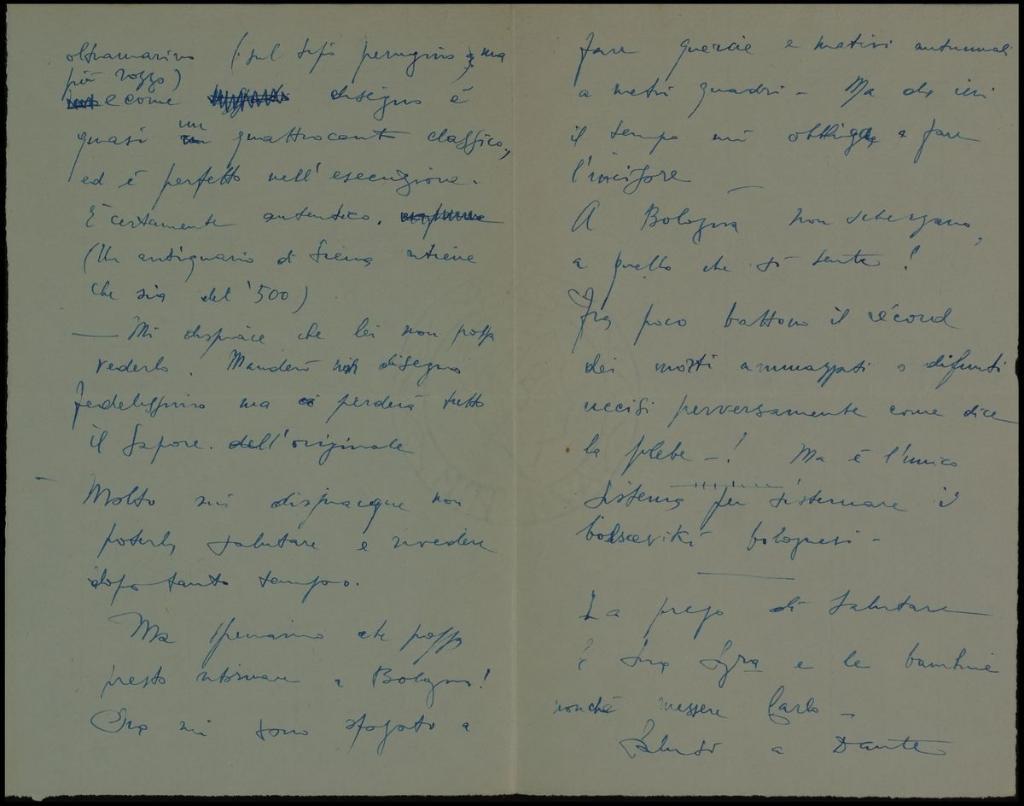 oltramarino (sul tipo perugino, ma
più rozzo)
e come disegno è
quasi un quattrocento classico,
ed è perfetto nell'esecuzione.
È certamente autentico.
(Un antiquario di Siena ritiene
che sia del '500)
— Mi dispiace che lei non possa
vederlo. Manderò disegno
fedelissimo ma perderà tutto
il sapore dell'originale
Molto mi dispiacque non
poterla salutare e rivedere
dopo tanto tempo.
Ma speriamo che possa
presto ritornare a Bologna!
Ora mi sono sfogato a
fare quercie e motivi autunnali
a metri quadri — Ma da ieri
il tempo mi obbliga a fare
l'incisore —
A Bologna non scherzano,
a quello che si sente!
Fra poco battono il récord
dei morti ammazzati o difunti
uccisi perversamente come dice
la plebe —! Ma è l'unico
sistema per sistemare i
bolsceviki bolognesi —
La prego di salutare
la Sua Sgra e le bambine
nonché messere Carlo —
Saluti a Dante